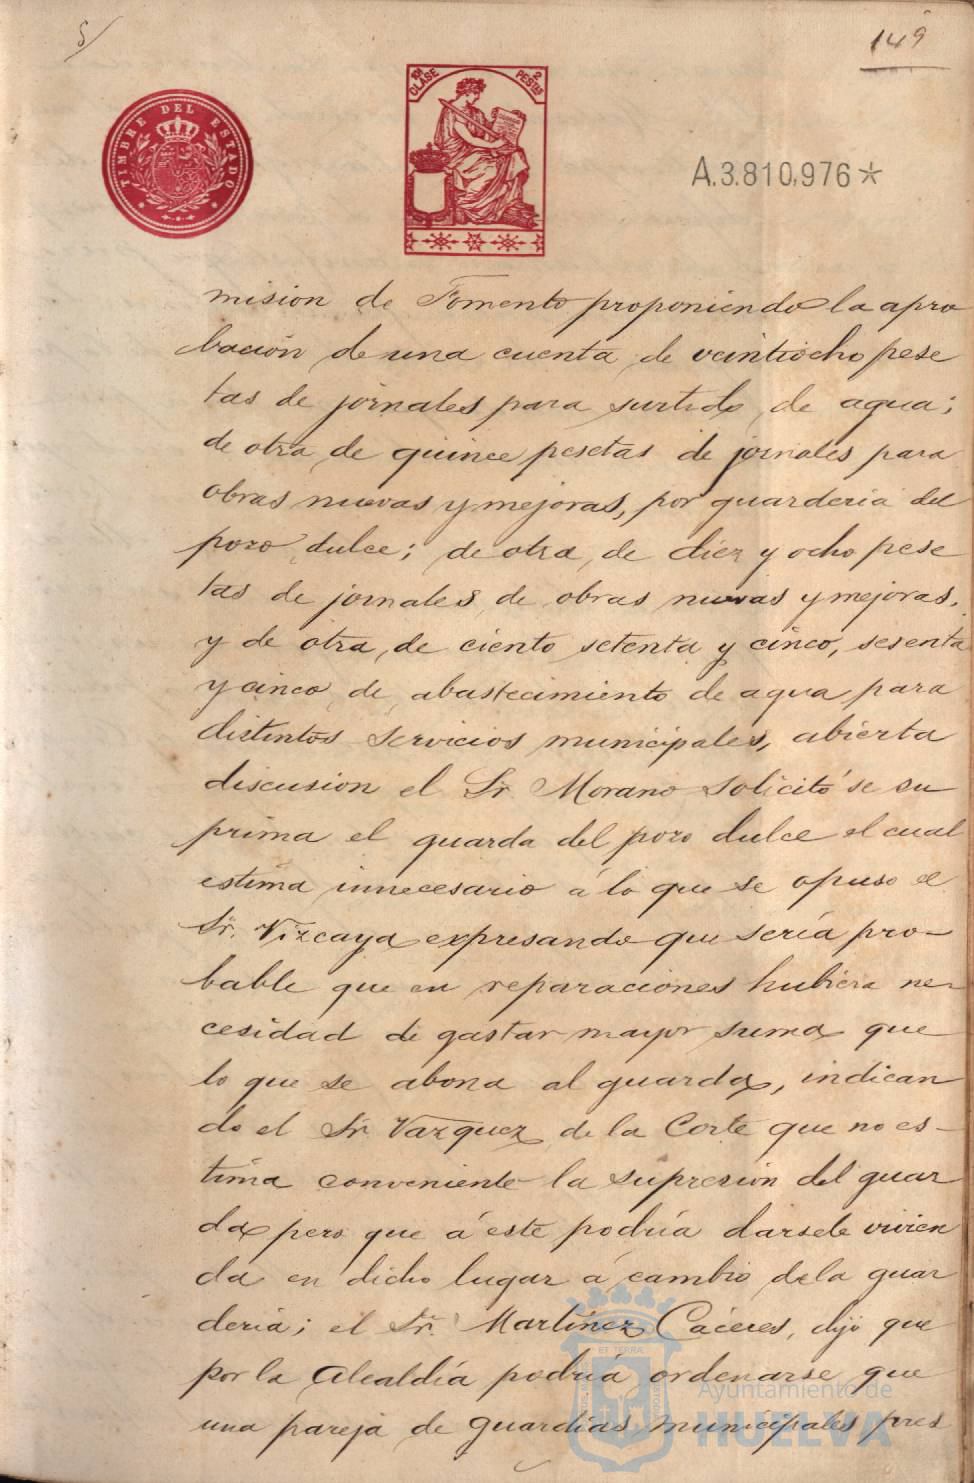 5/
149
TIMBRE DEL ESTADO
10ª CLASE
2 PESTAS
A.3.810,976*
mision de Fomento proponiendo la apro
bación de una cuenta de veintiocho pese
tas de jornales para surtido de agua;
de otra de quince pesetas de jornales para
obras nuevas y mejoras, por guarderia del
pozo dulce; de otra, de diez y ocho pese
tas de jornales de obras nuevas y mejoras,
y de otra, de ciento setenta y cinco, sesenta
y cinco de abastecimiento de agua para
distintos servicios municipales, abierta
discusion el Sr. Morano solicitó se su
prima el guarda del pozo dulce el cual
estima innecesario á lo que se opuso el
Sr. Vizcaya expresando que sería pro-
bable que en reparaciones hubiera ne-
cesidad de gastar mayor suma que
lo que se abona al guarda, indican
do el Sr. Vazquez de la Corte que no es-
tima conveniente la supresion del guar
da pero que á este podría darsele vivien
da en dicho lugar á cambio de la guar
deria; el Sr. Martínez Cáceres, dijo que
por la Alcaldía podría ordenarse que
una pareja de guardias municipales pres
Ayuntamiento de
HUELVA